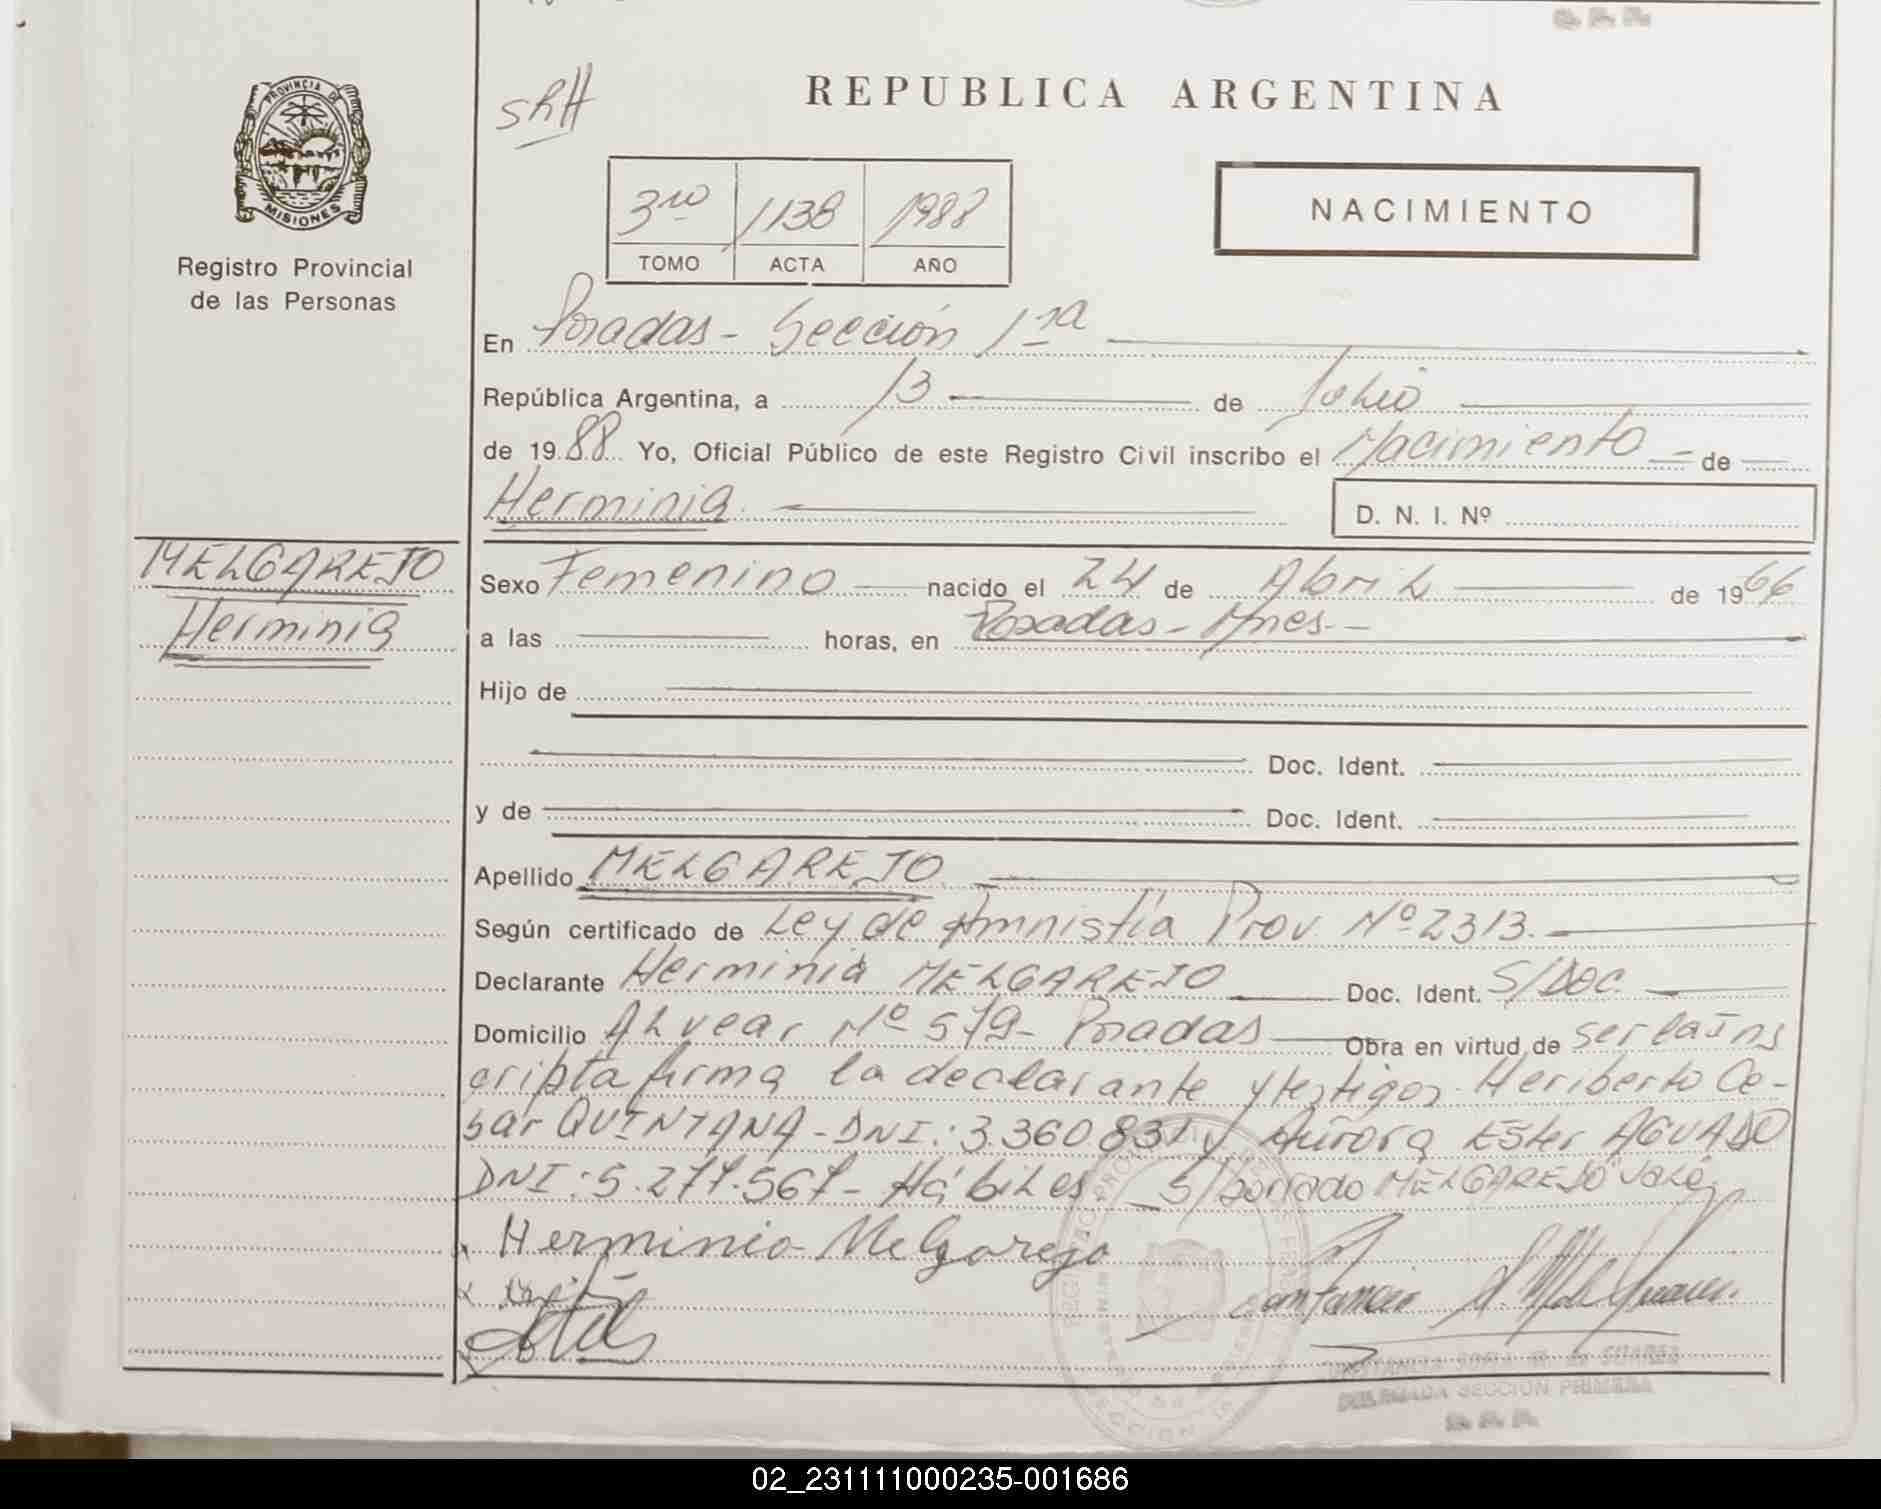 PROVINCIA DE
MISIONES
Registro Provincial
de las Personas
MELGAREJO
Herminia
REPUBLICA ARGENTINA
3ro 1138 1988
TOMO ACTA AÑO
NACIMIENTO
En Posadas - Sección 1ra
República Argentina, a 13 de Julio
de 1988 Yo, Oficial Público de este Registro Civil inscribo el Nacimiento de
Herminia.
D. N. I. Nº
Sexo Femenino nacido el 24 de Abril de 1966
a las horas, en Posadas - Mnes -
Hijo de
Doc. Ident.
y de Doc. Ident.
Apellido MELGAREJO
Según certificado de Ley de Amnistía Prov. Nº 2313.
Declarante Herminia MELGAREJO Doc. Ident. S/DOC.
Domicilio Alvear Nº 579 - Posadas Obra en virtud de ser la ins
cripta firma la declarante y testigos Heriberto Ce-
sar QUINTANA - DNI.: 3.360.831 y Aurora Ester AGUADO
DNI: 5.277.567 - Hábiles S/borrado MELGAREJO" Vale
x Herminia Melgarejo
x
CONSTANCIA SOFIA M. de SUAREZ
DELEGADA SECCION PRIMERA
02_231111000235-001686